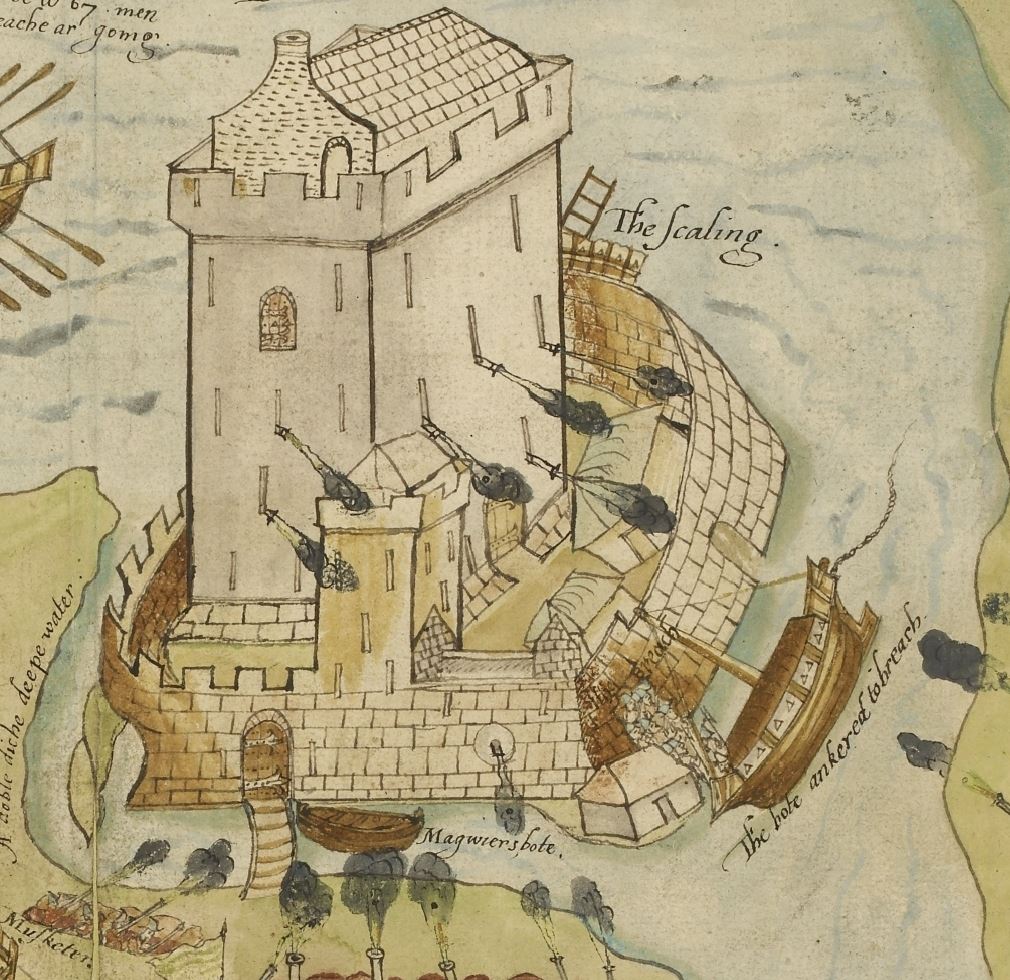 67 . men
eache ar going.
The scaling .
A doble diche deepe water .
breach
The bote ankered to breach .
Magwiers bote .
Musketers